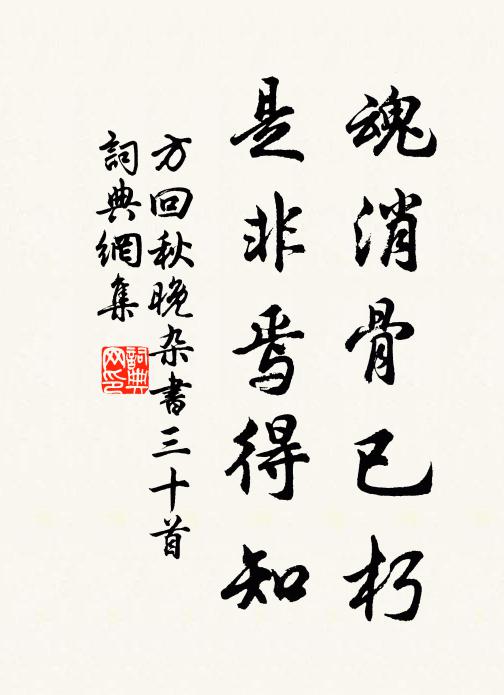 魂消骨已朽
是非焉得知
方回秋晚杂書三十首
詞典網集
詞典网印